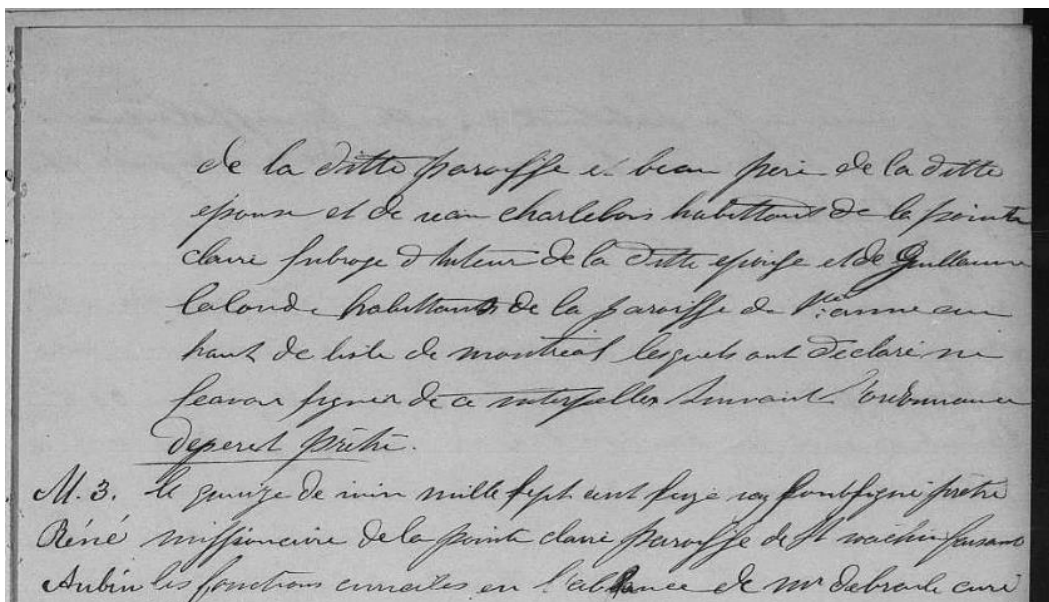 de la ditte paroisse et beau pere de la ditte
epouse et de jean charlebois habittant de la pointe
claire subroge d tuteur de la ditte epouse et de Guillaume
lalonde habittant de la paroisse de Ste anne au
haut de lisle de montreal lesquels ont declaré ne
scavoir signer de ce interpelles suivant l'ordonnance
deperet prêtre.
M. 3. le quinze de juin mille sept cent seize je soubsigné prêtre
Réné missionaire de la pointe claire paroisse de St joachim faisant
Aubin les fonctions curiales en l'absence de mr curé